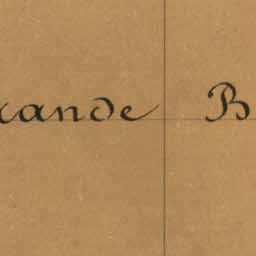 rande B